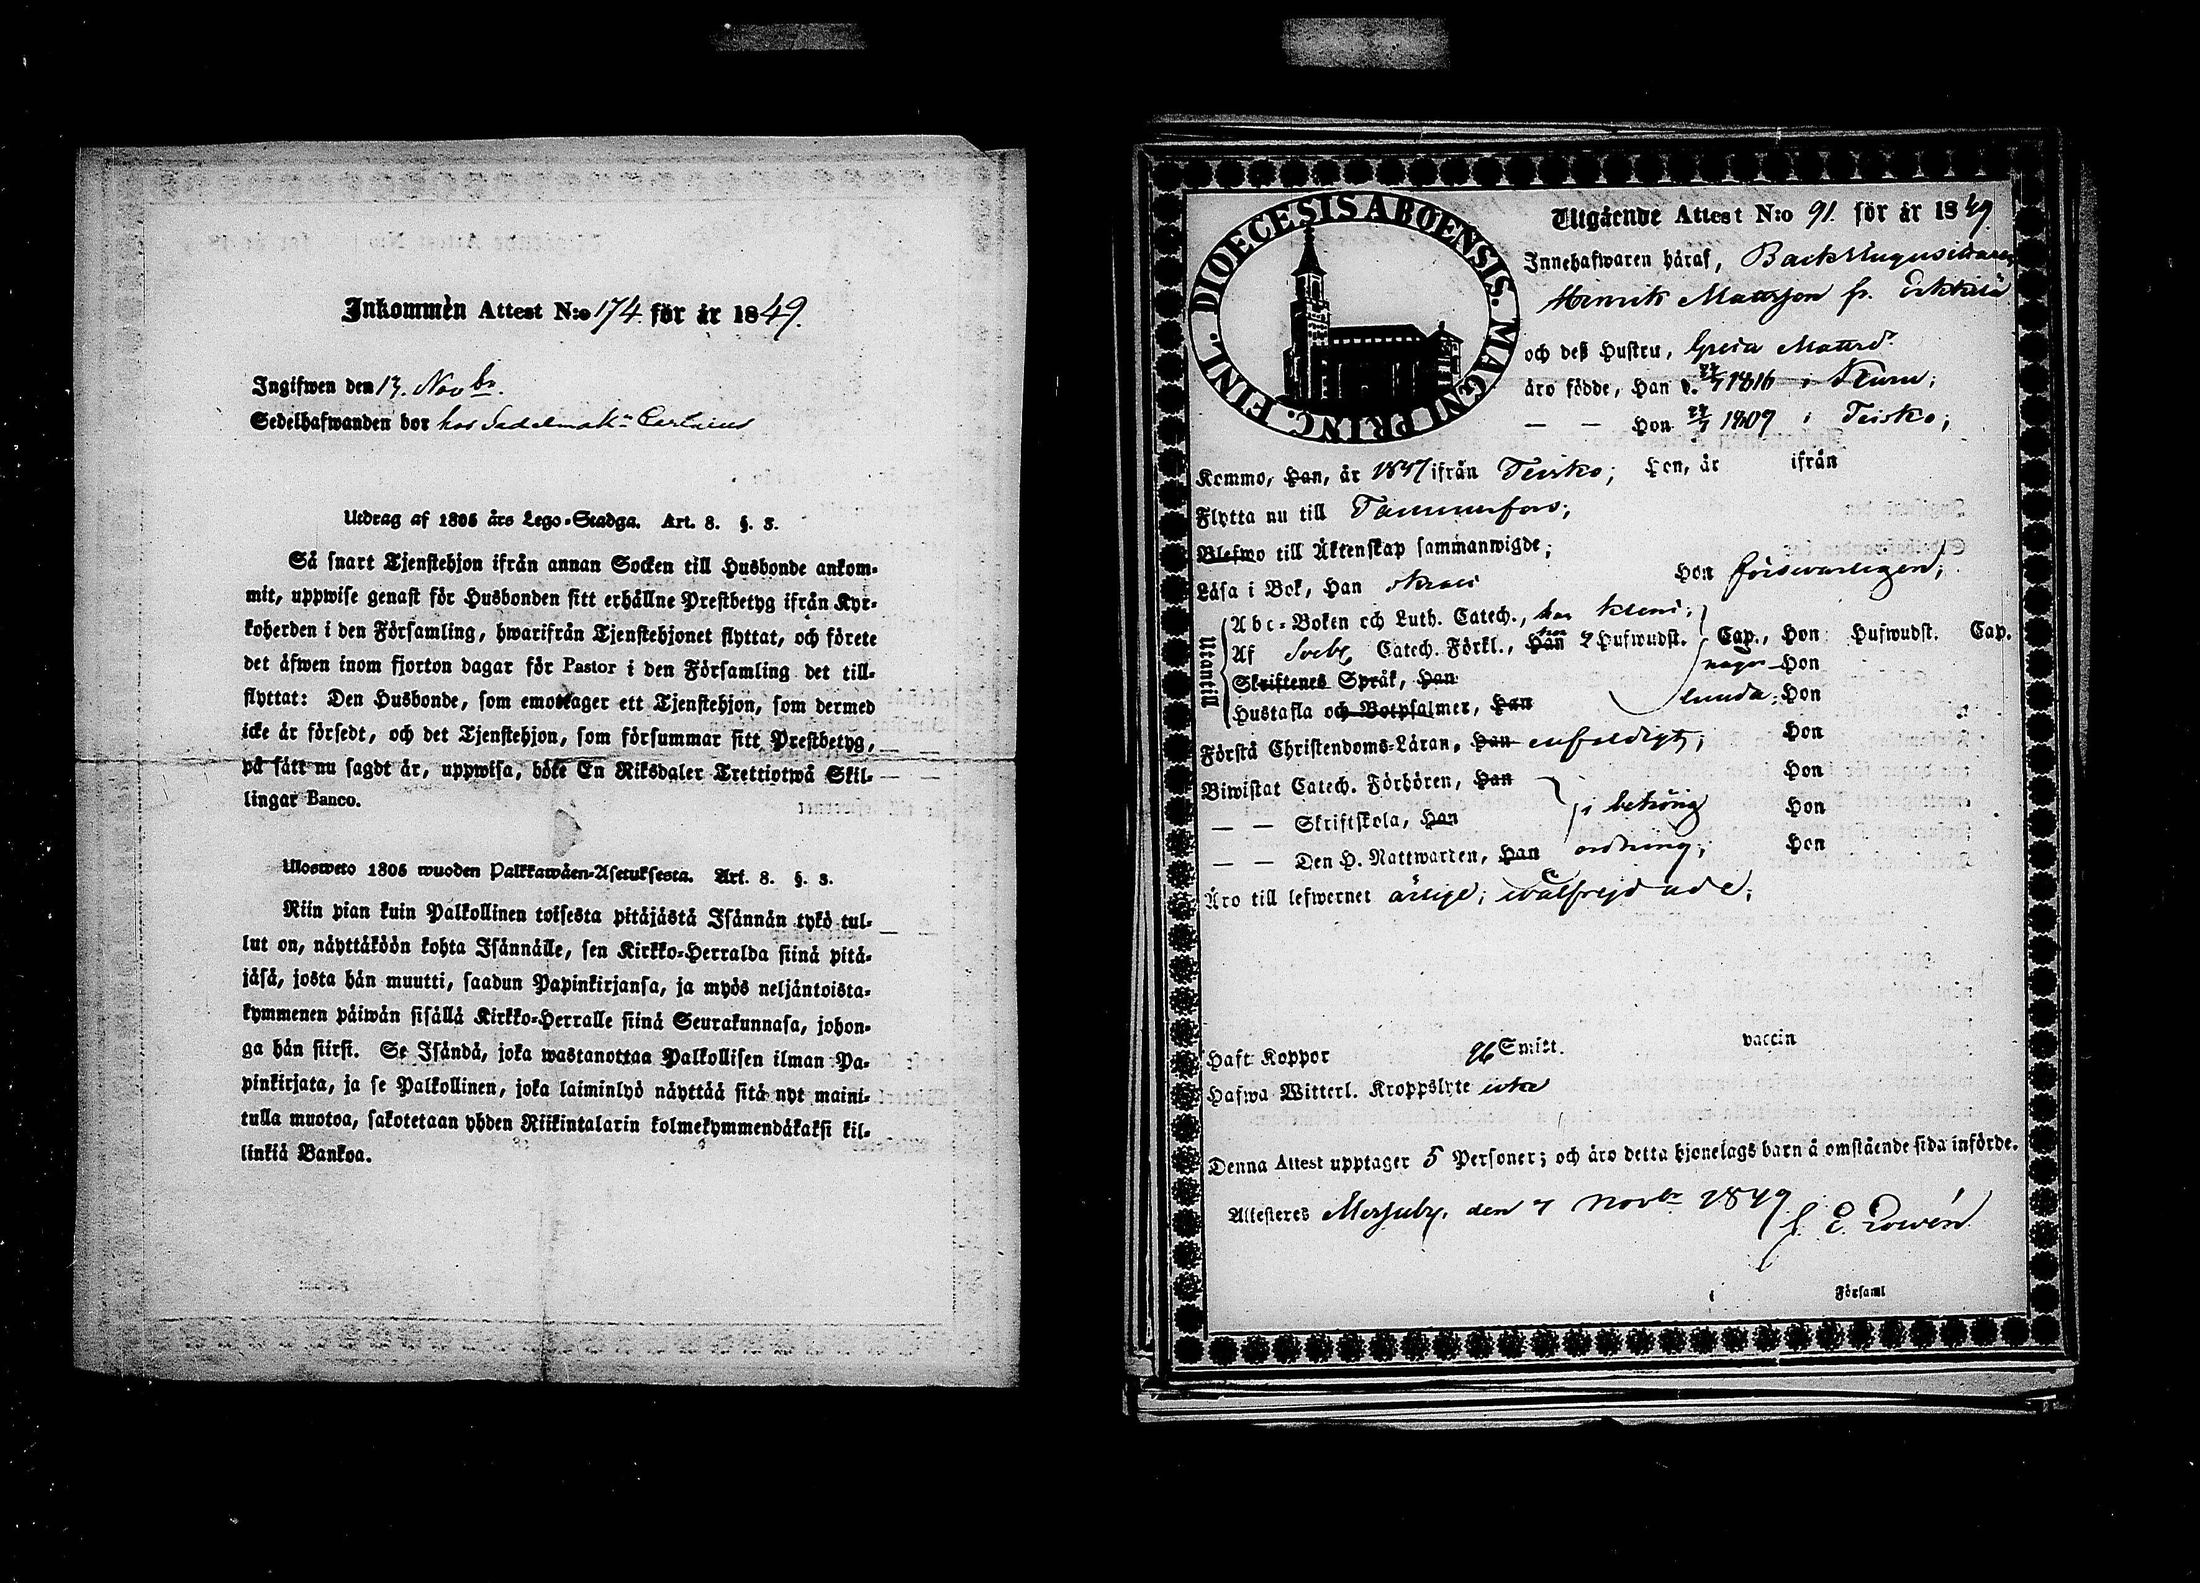 Inkommen Attest N:o 174. för år 1849.
Ingifwen den 13. Novbr.
Sedelhafwanden bor hos Sadelmak:
Utdrag af 1805 års Lego-Stadga. Art. 8. §. 3.
Så snart Tjenstehjon ifrån annan Socken till Husbonde ankom-
mit, uppwise genast för Husbonden sitt erhållne Prestbetyg ifrån Kyr-
koherden i den Församling, hwarifrån Tjenstehjonet flyttat, och förete
det äfwen inom fjorton dagar för Pastor i den Församling det till-
flyttat: Den Husbonde, som emottager ett Tjenstehjon, som dermed
icke är försedt, och det Tjenstehjon, som försummar sitt Prestbetyg,
på sätt nu sagdt är, uppwisa, böte En Riksdaler Trettiotwå Skil-
lingar Banco.
Ulosweto 1805 wuoden Palkkawäen-Asetuksesta. Art. 8. §. 3.
Niin pian kuin Palkollinen toisesta pitäjästä Isännän tykö tul-
lut on, näyttäköön kohta Isännälle, sen Kirkko-Herralda siinä pitä-
jäsä, josta hän muutti, saadun Papinkirjansa, ja myös neljäntoista-
kymmenen päiwän sisällä Kirkko-Herralle siinä Seurakunnasa, johon-
ga hän siirsi. Se Isändä, joka wastanottaa Palkollisen ilman Pa-
pinkirjata, ja se Palkollinen, joka laiminlyö näyttää sitä nyt maini-
tulla muotoa, sakotetaan yhden Riikintalarin kolmekymmendäkaksi kil-
linkiä Bankoa.
DIOECESIS ABOENSIS. MAGNI PRINC. FINL.
Utgående Attest N:o 91. för år 1849.
Innehafwaren häraf, Backstugusittaren
Henrik Mattsson fr. Erkkilä
och deß Hustru, Greta Mattsd.
äro födde, Han d. 1816 i
— — Hon 1807 i Teisko;
Kommo, Han, år 1847 ifrån Teisko; Hon, år ifrån
Flytta nu till Tammerfors;
Blefwo till Äktenskap sammanwigde;
Läsa i Bok, Han swagt Hon förswarligen;
Utantill
Abc-Boken och Luth. Catech., har
Af Sveb. Catech. Förkl., Han 2 Hufwudst. Cap., Hon Hufwudst. Cap.
Skriftenes Språk, Han någor Hon
Hustafla och Botpsalmer, Han lunda; Hon
Förstå Christendoms-Läran, Han enfaldigt; Hon
Biwistat Catech. Förhören, Han Hon
— — Skriftskola, Han i behörig Hon
— — Den H. Nattwarden, Han ordning; Hon
Äro till lefwernet ärlige; wälfrejdade;
Haft Koppor Smitt. vaccin
Hafwa Witterl. Kroppslyte icke
Denna Attest upptager 5 Personer; och äro detta hjonelags barn å omstående sida införde.
Attesteres Messuby, den 7 Novbr 1849.
Församl